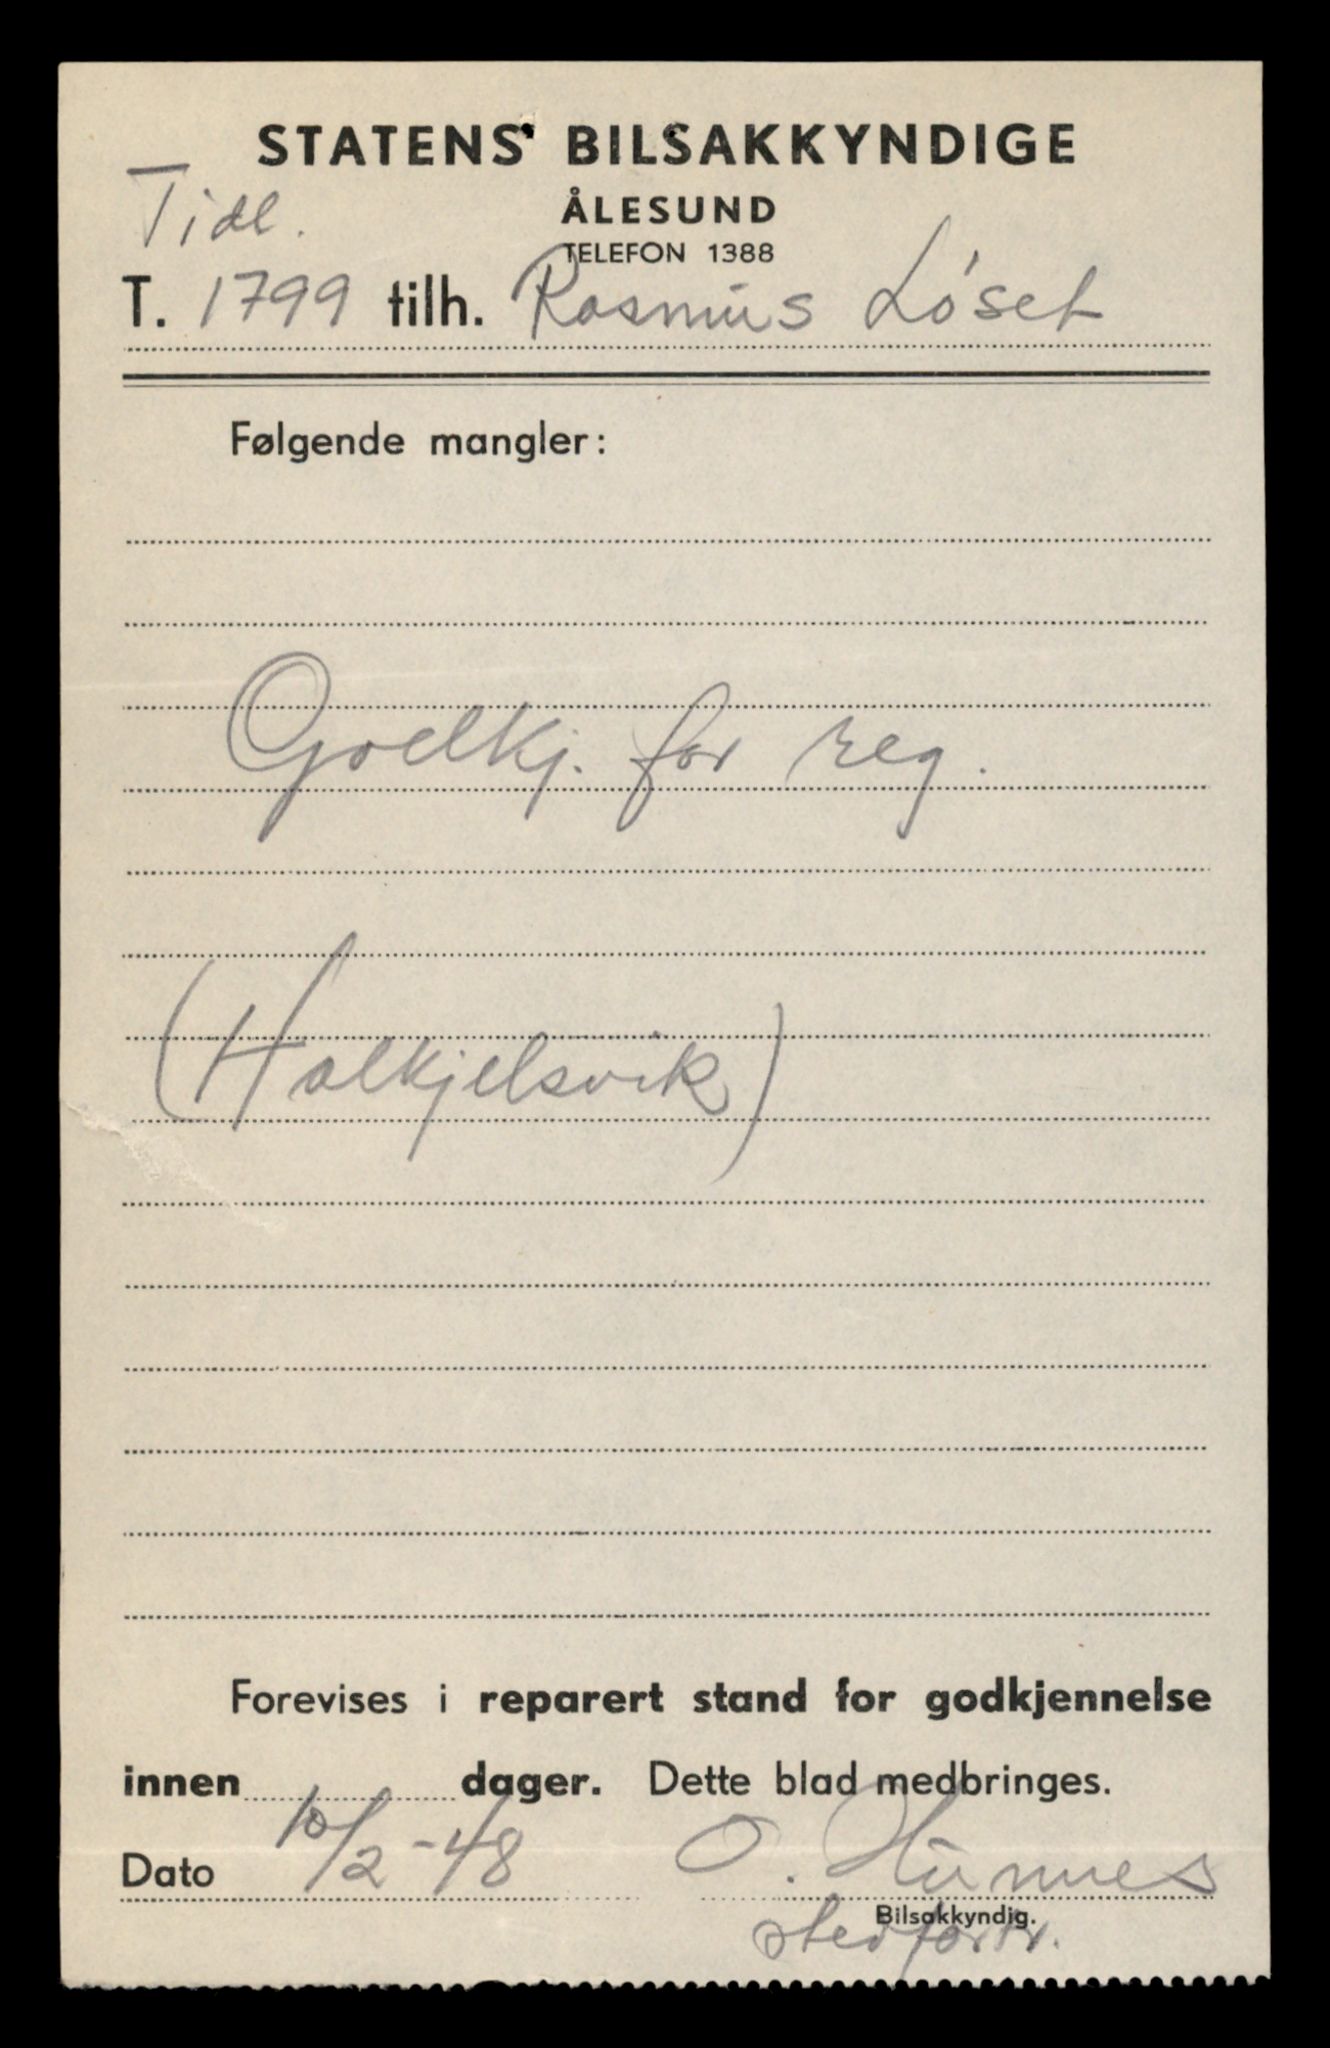 STATENS BILSAKKYNDIGE
ÅLESUND
TELEFON 1388
Tidl.
T. 1799 tilh. Rasmus Løset
Følgende mangler:
Godkj. for reg.
(Halkjelsvik)
Forevises i reparert stand for godkjennelse
innen dager. Dette blad medbringes.
Dato 10/2-48 O.
Bilsakkyndig.
stedfortr.